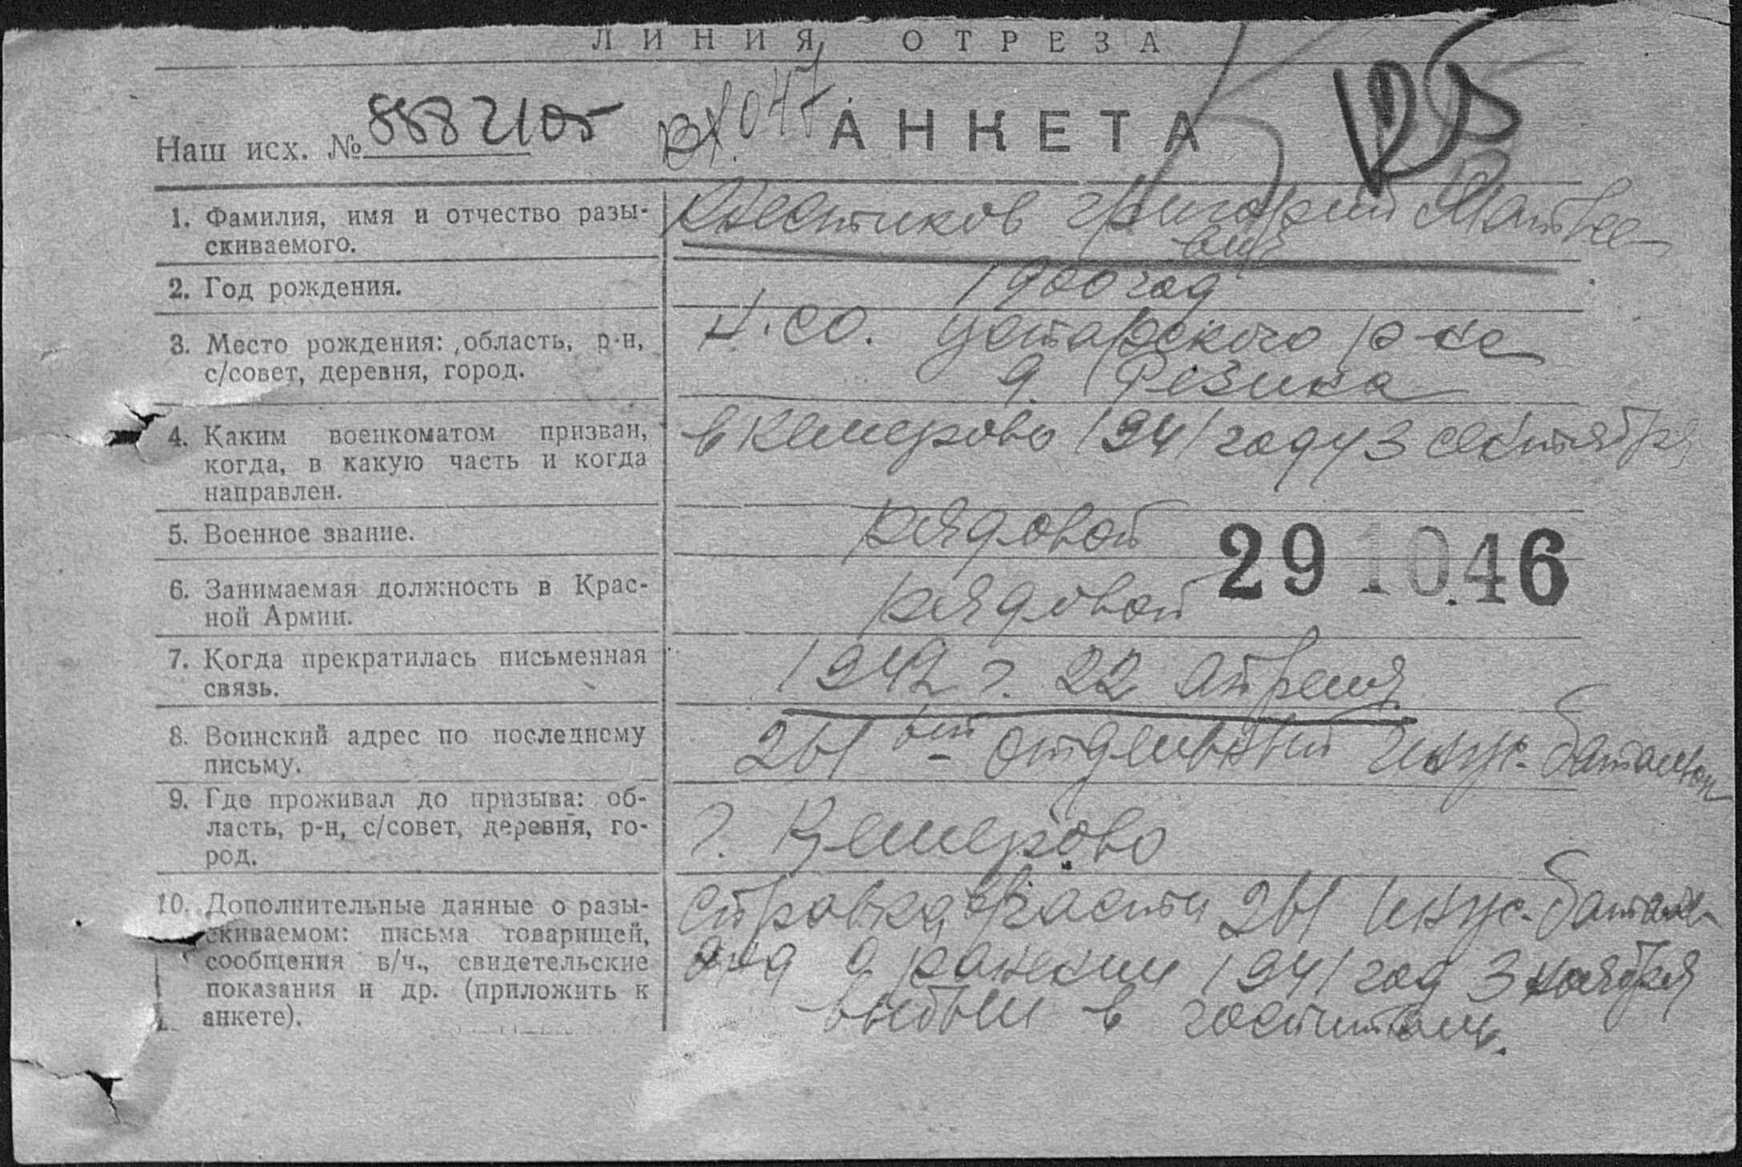 ЛИНИЯ ОТРЕЗА
Наш исх. № 8882105 Вх. 047 АНКЕТА
1. Фамилия, имя и отчество разы-
скиваемого.
Григорий Матвее
вич
2. Год рождения.
1900 год
3. Место рождения: область, р-н,
с/совет, деревня, город.
Н.СО. Устарского р-на
д. Резина
4. Каким военкоматом призван,
когда, в какую часть и когда
направлен.
в Кемерово 1941 году 3 сентября
5. Военное звание.
рядовой
29 10.46
6. Занимаемая должность в Крас-
ной Армии.
рядовой
7. Когда прекратилась письменная
связь.
1942 г. 22 апреля
8. Воинский адрес по последнему
письму.
261 отдельный баталион
9. Где проживал до призыва: об-
ласть, р-н, с/совет, деревня, го-
род.
г. Кемерово
10. Дополнительные данные о разы-
скиваемом: письма товарищей,
сообщения в/ч., свидетельские
показания и др. (приложить к
анкете).
справка части 261
1941 год 3 ноября
выбыл в госпиталь.